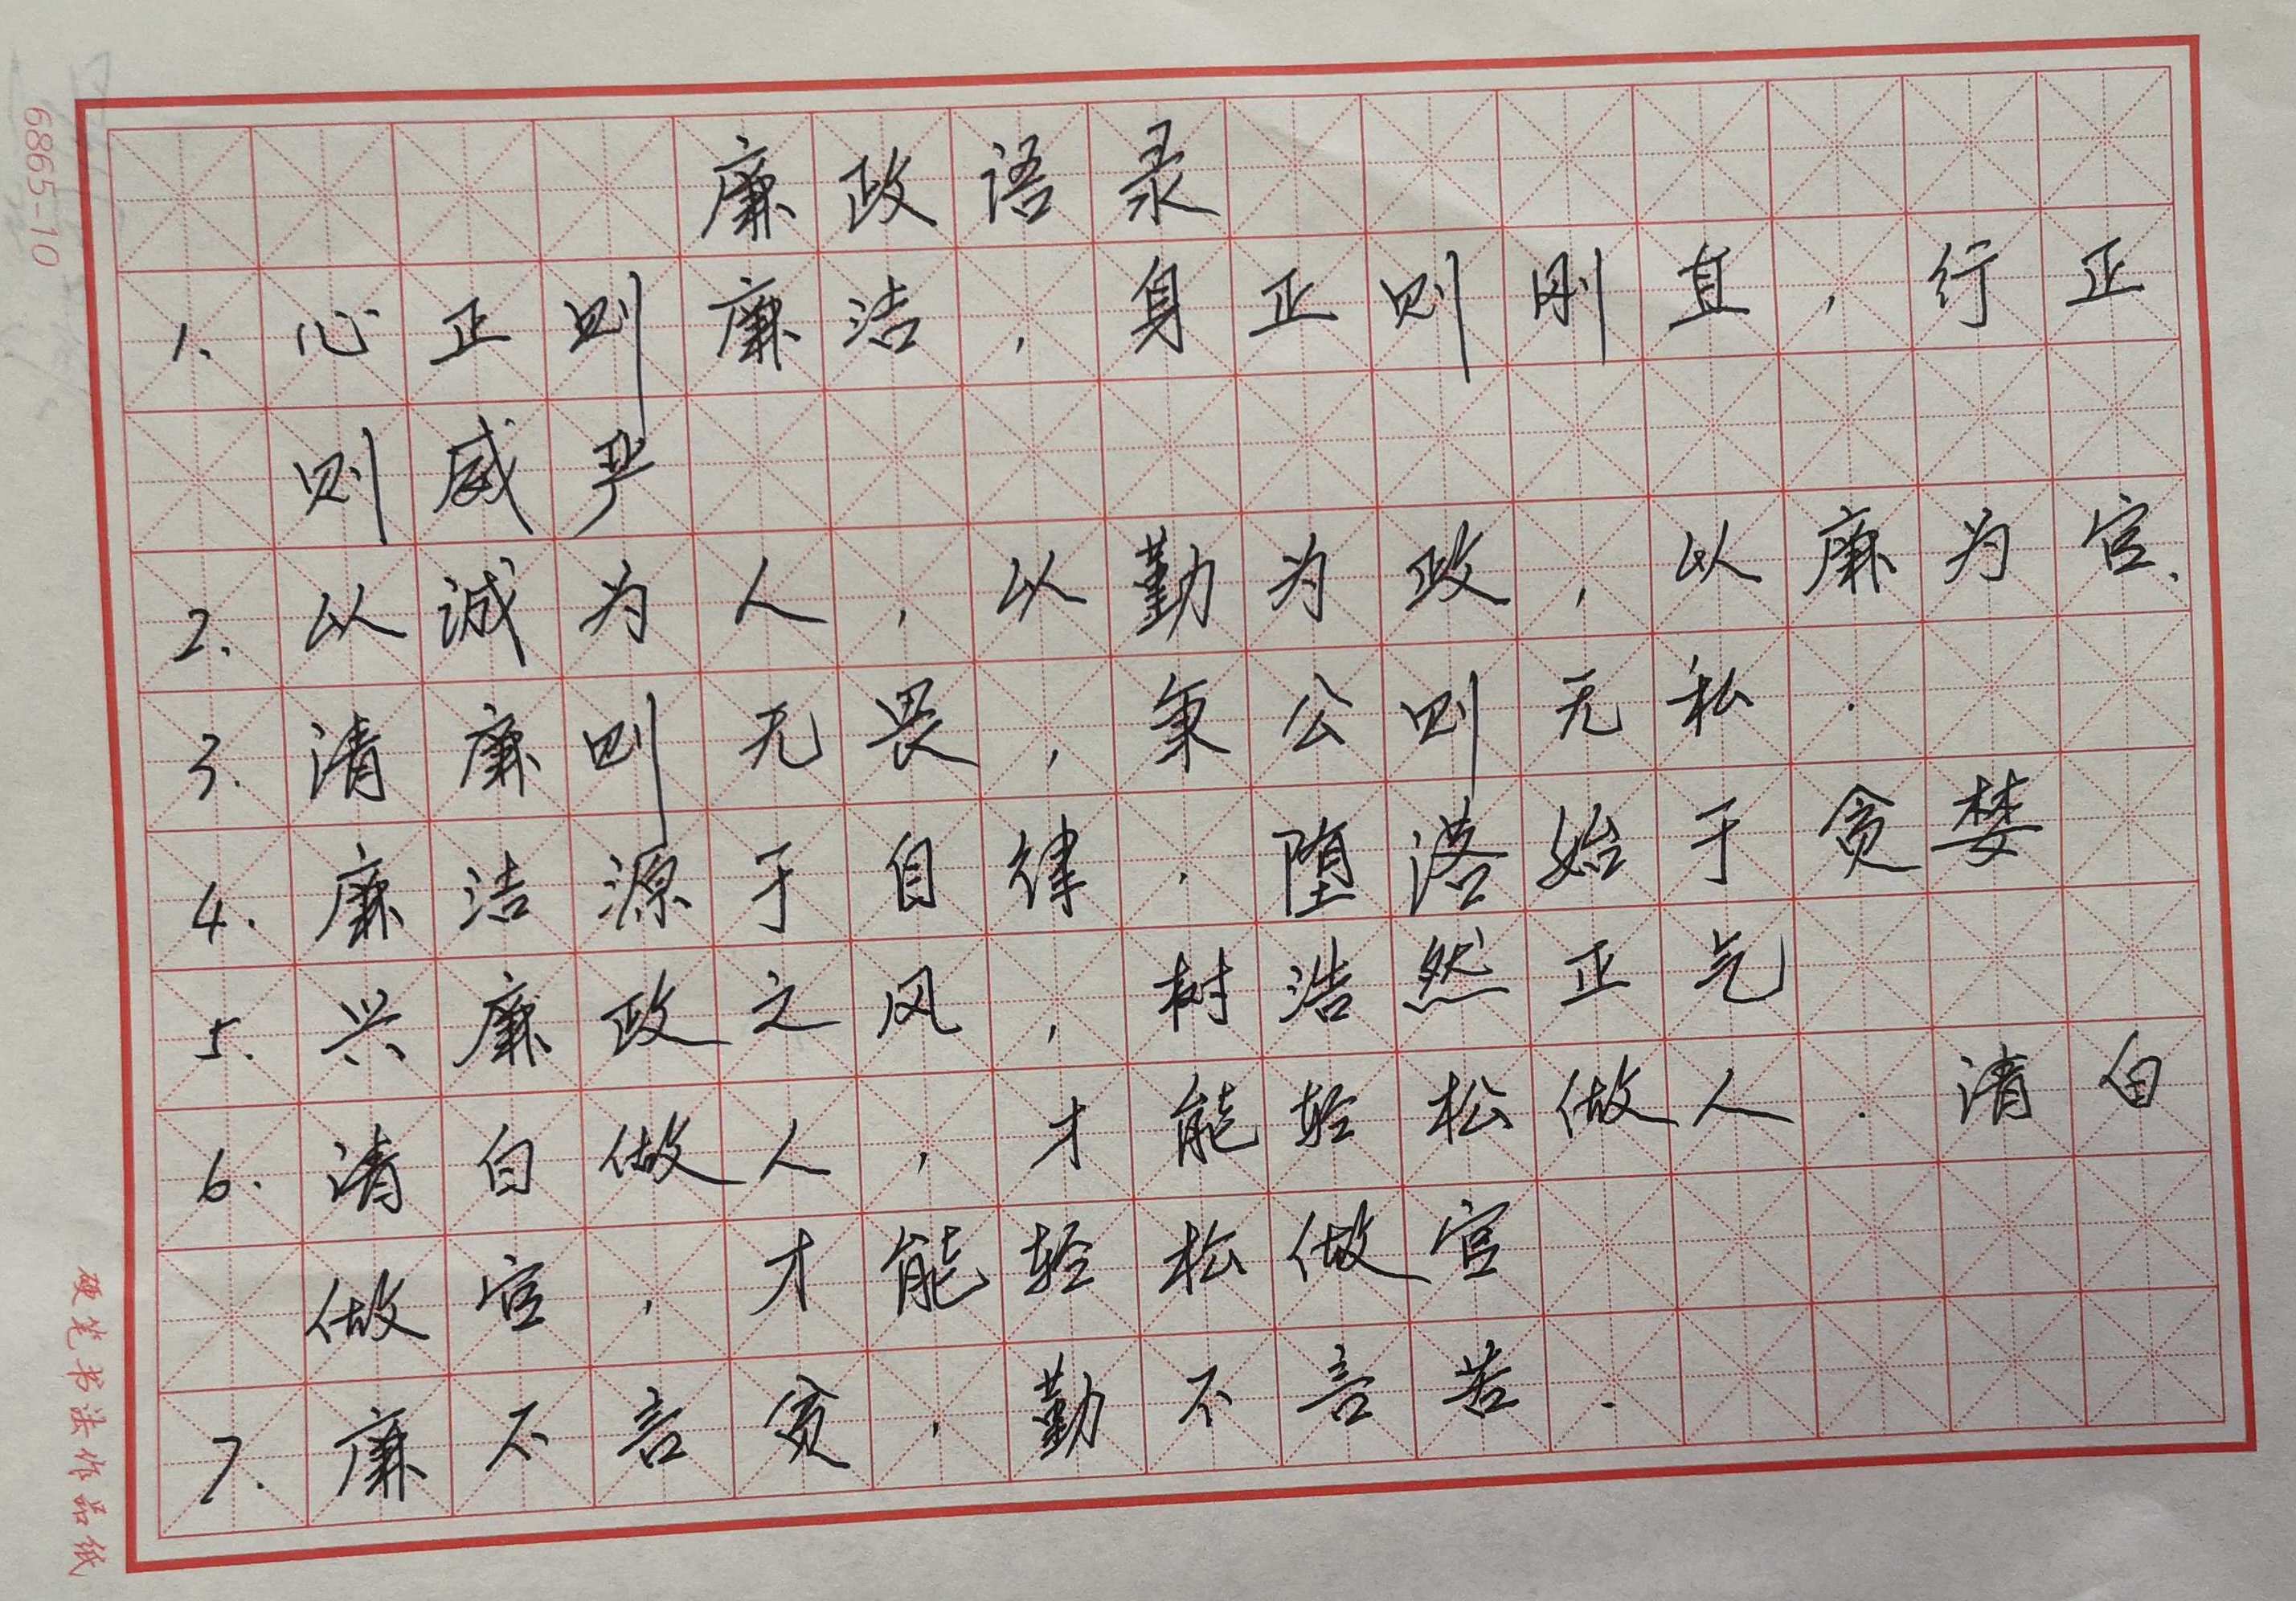 廉政语录
1. 心正则廉洁，身正则刚直，行正
则威严
2. 以诚为人，以勤为政，以廉为官.
3. 清廉则无畏，秉公则无私.
4. 廉洁源于自律.堕落始于贪婪
5. 兴廉政之风，树浩然正气
6. 清白做人，才能轻松做人.清白
做官，才能轻松做官
7. 廉不言贫，勤不言苦.
6865-10
硬笔书法作品纸